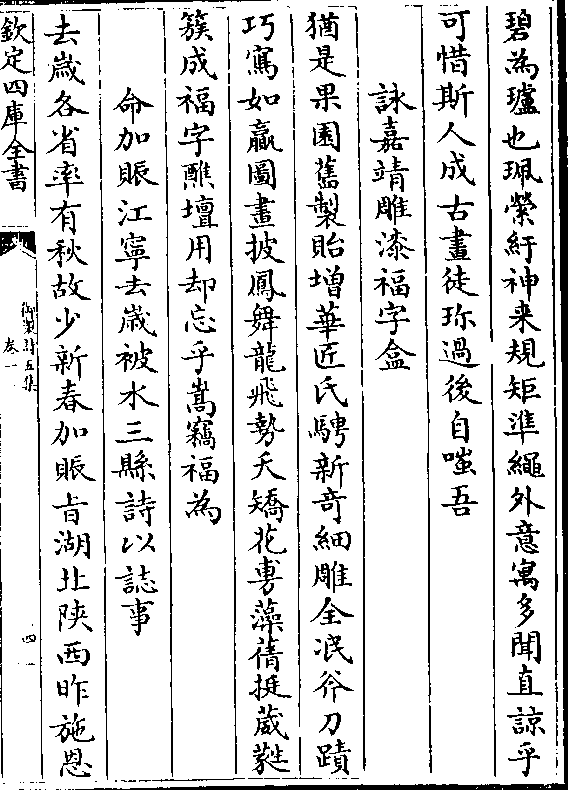 碧為瓐也珮縈紆神来規矩準繩外意寓多聞直諒乎
可惜斯人成古畫徒珎過後自嗤吾
詠嘉靖雕漆福字盒
猶是果園舊製貽増華匠氏騁新竒細雕全泯斧刀蹟
巧寫如贏圖畫披鳳舞龍飛勢夭矯花旉藻蒨挺葳蕤
簇成福字醮壇用却忘乎嵩竊福為
命加賑江寧去嵗被水三縣詩以誌事
去嵗各省率有秋故少新春加賑㫖湖北陜西昨施恩
欽定四庫全書
御製詩五集
卷一
四